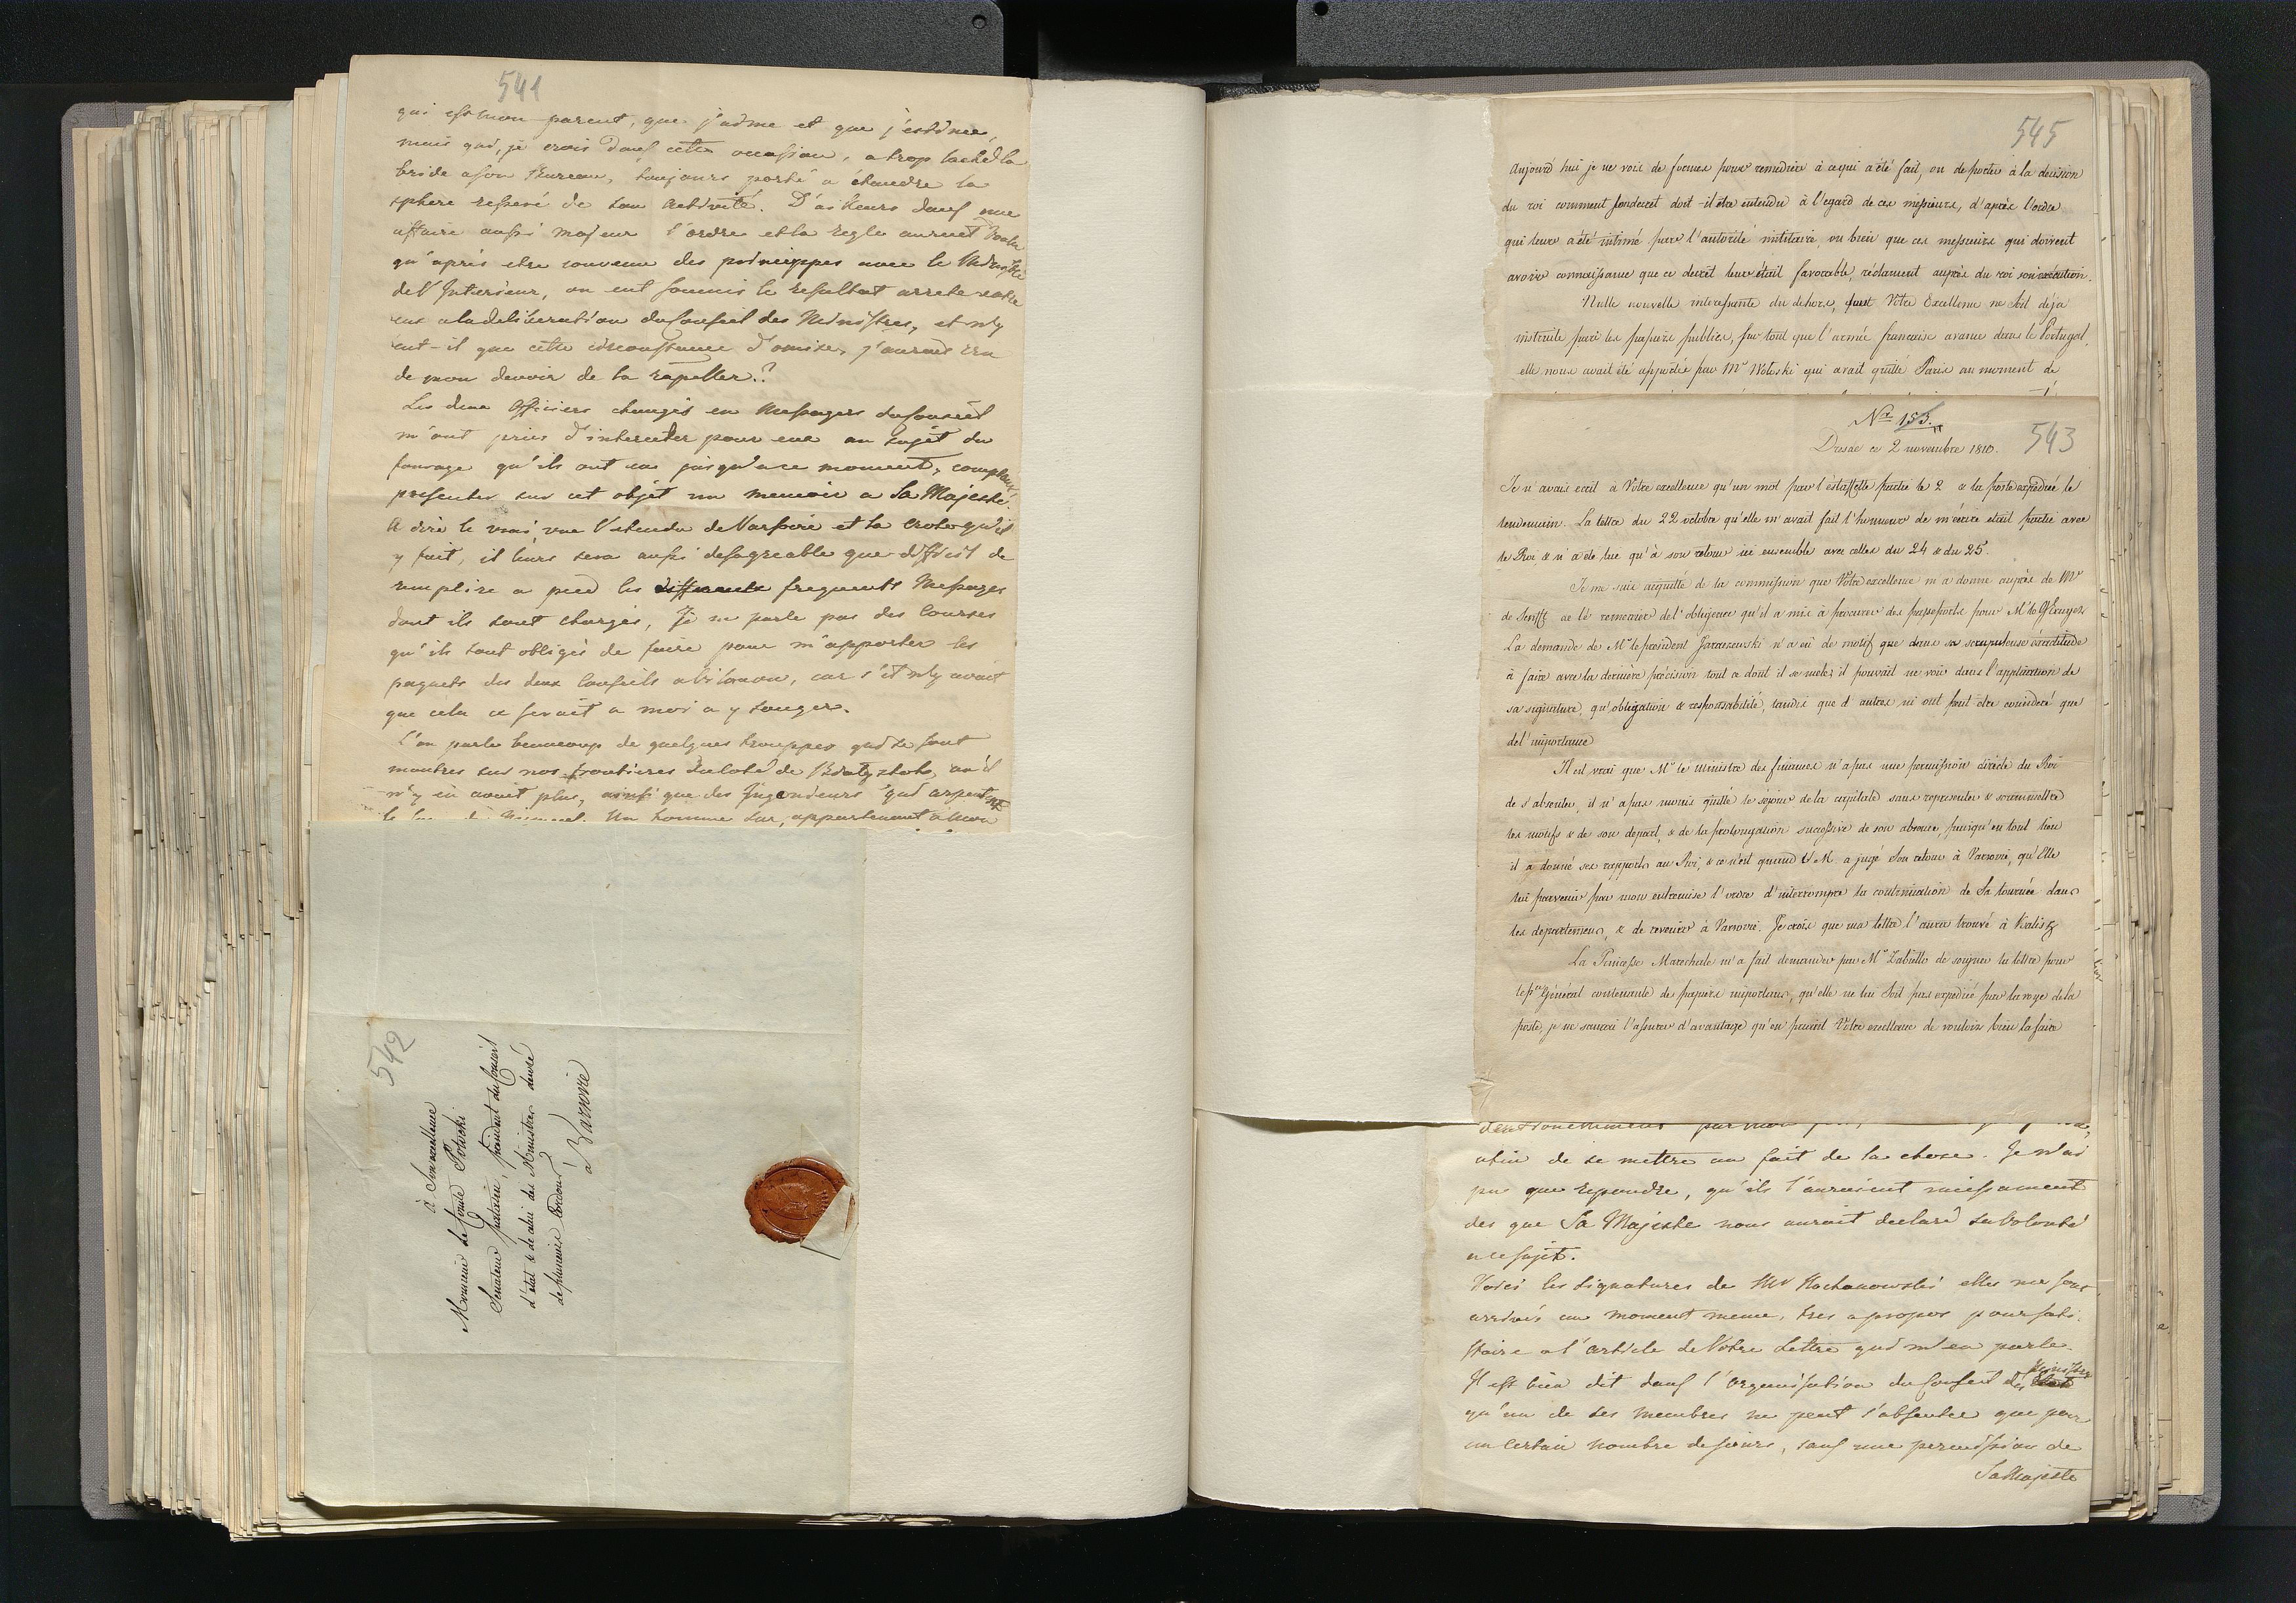 541
qui est mon parent, que j'aime et que j'estime,
mais qui, je crois dans cette occasion, a trop laché la
bride a son Bureau, toujours porté a étendre la
sphere resseré de son activité. D'ailleurs dans une
affaire aussi majeur l'ordre et la regle auroient voulu
qu'après etre convenu des principes avec le Ministre
de l'Interieur, on eut soumis le resultat arreté entre
eux a la deliberation du Conseil des Ministres, et n'y
eut-il que cette circonstance d'omise, j'aurois cru
de mon devoir de la rapeller.
Les deux officiers changés en Messagers du Conseil
m'ont priés d'interceder pour eux au sujet du
fourage qu'ils ont eus jusqu'a ce moment, comptant
presenter sur cet objet un memoir a Sa Majesté.
A dire le vrai, vue l'etendu de Varsovie et la crote qu'il
y fait, il leurs sera aussi desagreable que difficil de
remplire a pied les frequents Messages
dont ils sont chargés, Je ne parle pas des Courses
qu'ils sont obligés de faire pour m'apporter les
paquets des deux Conseils a Wilanow, car s'il n'y avoit
que cela ce seroit a moi a y songer.
L'on parle beaucoup de quelques trouppes qui se sont
montrés sur nos frontieres du coté de Bialystok, ou il
n'y en avoit plus, ainsi que des Ingenieurs qui arpentent
Un homme sur, appartenant a mon
542
à Son excellence
Monsieur le Comte Potocki
Senateur palatin, president du Conseil
d'état & de celui des Ministres decoré
de plusieurs Cordons
à Varsovie
545
Aujourd'hui je ne vois de formes pour remedier à ce qui a été fait, ou de porter à la decision
du roi comment son decret doit-il être entendu à l'egard de ces messieurs, d'après l'ordre
qui leur a été intimé par l'autorité militaire, ou bien que ces messieurs qui doivent
avoir connaissance que ce decret leur était favorable, réclament auprès du roi son exécution.
Nulle nouvelle interessante du dehors, dont Votre Excellence ne soit déja
instruite par les papiers publics, sur tout que l'armée française avance dans le Portugal,
elle nous avait été apportée par Mr Woloski qui avait quitté Paris au moment de
Nr 153.
543
Dresde ce 2 novembre 1810.
Je n'avais ecrit à Votre excellence qu'un mot par l'estaffette partie le 2 & la poste expédiée le
lendemain. La lettre du 22 octobre qu'elle m'avait fait l'honneur de m'écrire était partie avec
le Roi & n'a été lue qu'à son retour ici ensemble avec celles du 24 & du 25.
Je me suis acquitté de la commission que Votre excellence m'a donné auprès de Mr
de Senfft de le remercier de l'obligeance qu'il a mis à procurer des passeports pour Mr
La demande de Mr le president Jaraczewski n'a eu de motif que dans sa scrupuleuse éxactitude
à faire avec la dernière précision tout ce dont il se mele; il pouvait ne voir dans l'application de
sa signature, qu'obligation & responsabilité, tandis que d'autres n'y ont peut être consideré que
de l'importance
Il est vrai que Mr le ministre des finances n'a pas une permission directe du Roi
de s'absenter, il n'a pas moins quitté le séjour de la capitale sans representer & soummettre
les motifs & de son depart, & de la prolongation successive de son absence, puisqu'en tout lieu
il a donné ses rapports au Roi, & ce n'est quand S. M. a jugé son retour à Varsovie, qu'Elle
lui parvenir par mon entremise l'ordre d'interrompre la continuation de sa tournée dans
les departemens, & de revenir à Varsovie. Je crois que ma lettre l'aura trouvé à Kalisz
La Princesse Marechale m'a fait demander par Mr Zabiello de soigner la lettre pour
le pce Général contenante des papiers importans, qu'elle ne lui soit pas expediée par la voye de la
poste, je ne saurai l'assurer d'avantage qu'en priant Votre excellence de vouloir bien la faire
afin de se mettre au fait de la chose. Je n'ai
pu que repondre, qu'ils l'auroient incessament
des que Sa Majesté nous auroit declaré sa volonté
a ce sujet.
Voici les signatures de Mr Kochanowski elles me sont
arrivés au moment meme, tres a propos pour satis-
faire a l'article de Votre Lettre qui m'en parle.
Il est bien dit dans l'organisation du Conseil des Ministres
qu'un de ses membres ne peut s'absenter que pour
un certain nombre de jours, sauf une permission de
Sa Majesté